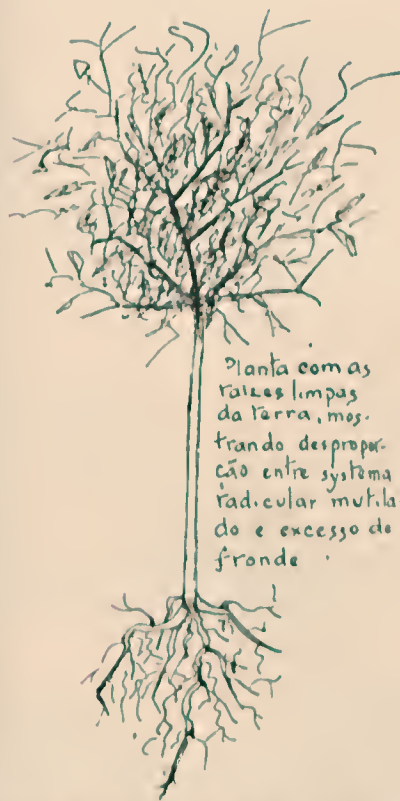 Planta com as
raizes limpas
da terra, mos-
trando despropor-
ção entre systema
radicular mutila
do e excesso de
fronde.